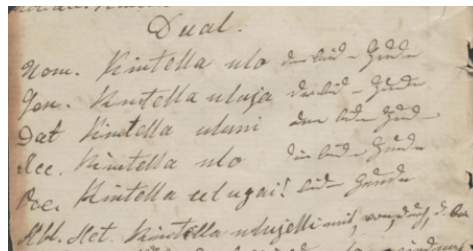 Dual.
Nom. Kintella ulo die beiden Hunde
Gen. Kintella uluja der beiden Hunde
Dat Kintella uluni den beiden Hunden
Acc. Kintella ulo die beiden Hunde
Voc. Kintella ulugai! beiden Hunde
Abl. Act. Kintella ulujelli mit, von, durch, d.